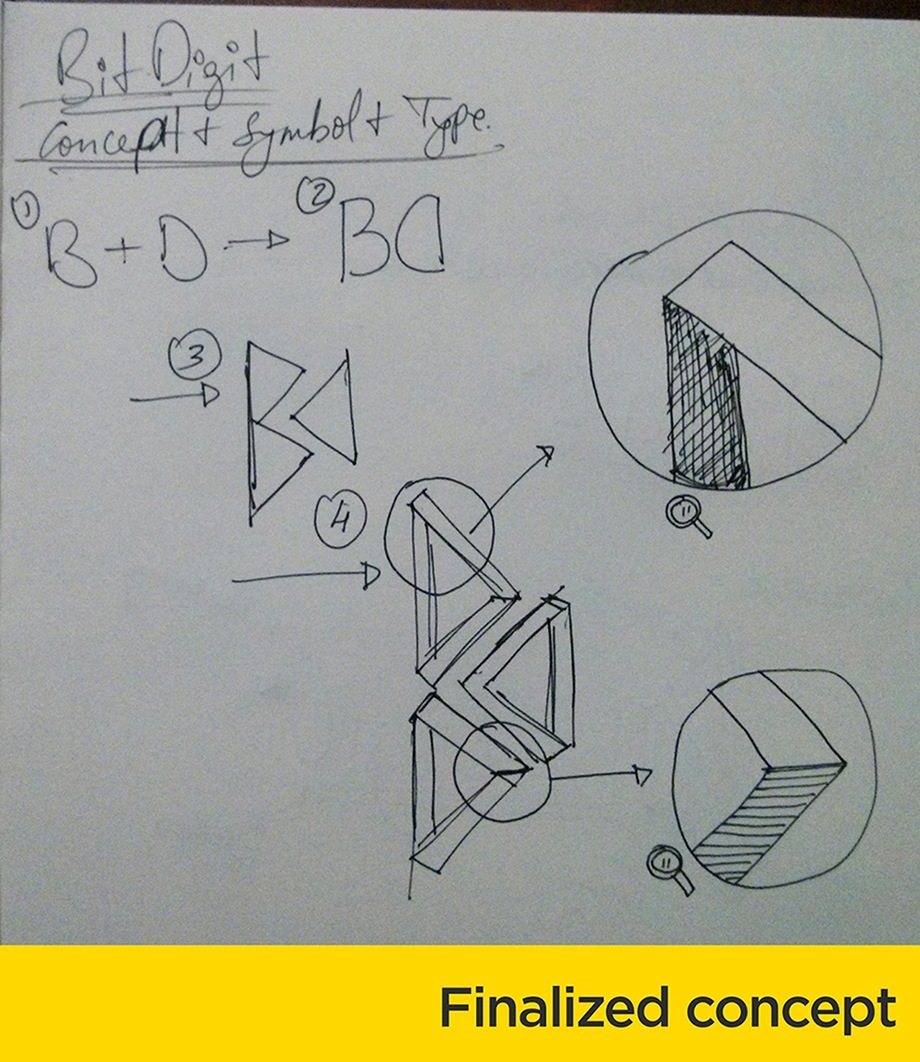 Bit Digit
Concept + Symbol + Type.
① B + D → ② BD
③ BD
④
11
11
Finalized concept